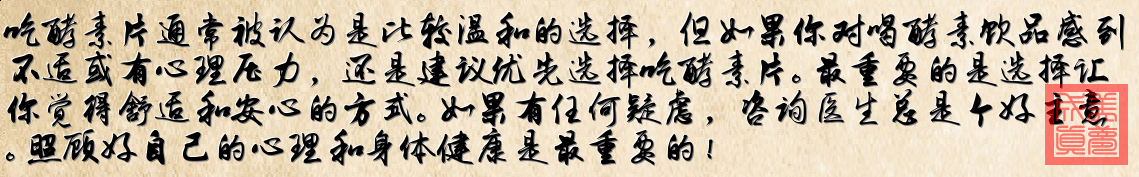 吃酵素片通常被认为是比较温和的选择，但如果你对喝酵素饮品感到
不适或有心理压力，还是建议优先选择吃酵素片。最重要的是选择让
你觉得舒适和安心的方式。如果有任何疑虑，咨询医生总是个好主意
。照顾好自己的心理和身体健康是最重要的！
美梦成真